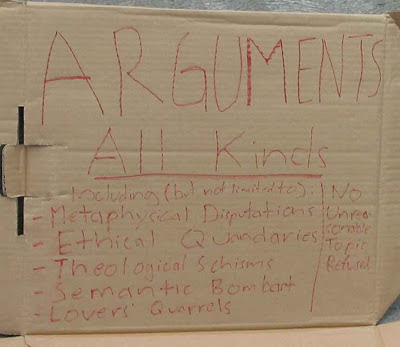 ARGUMENTS
All Kinds
Including (but not limited to):
- Metaphysical Disputations
- Ethical Quandaries
- Theological Schisms
- Semantic Bombast
- Lovers' Quarrels
No
Unrea-
sonable
Topic
Refused